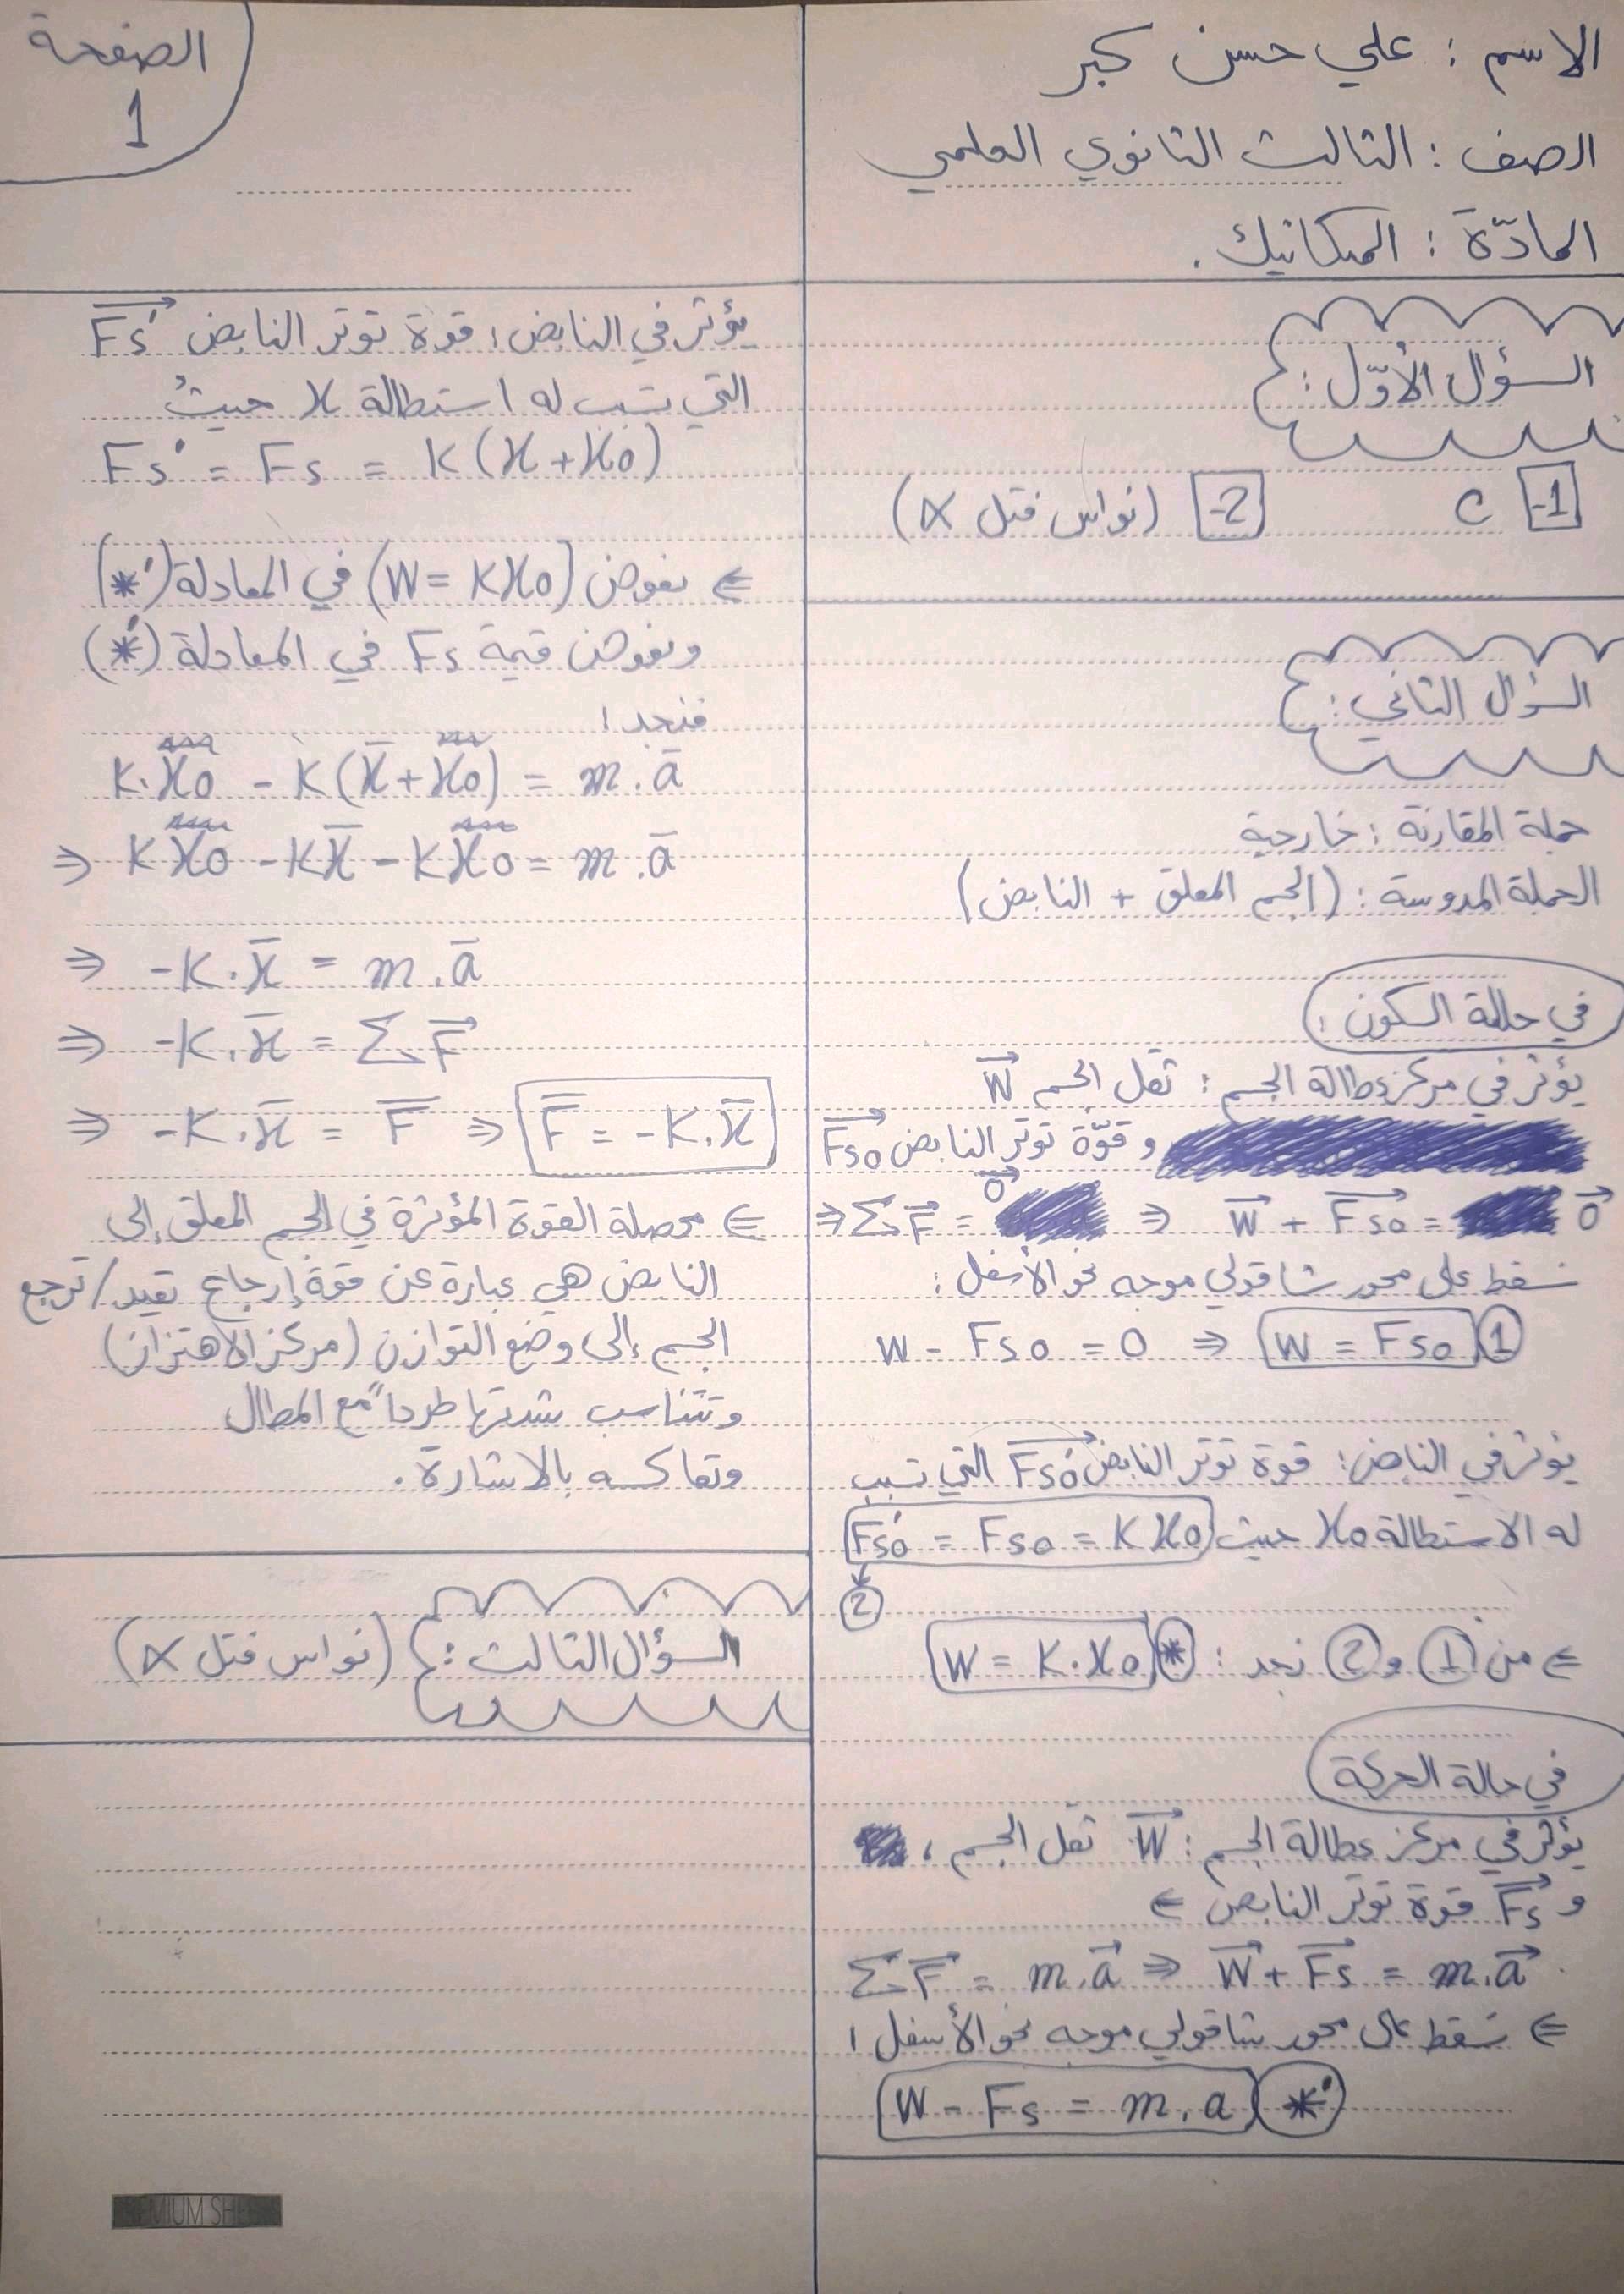 الاسم : علي حسن كبر
الصف : الثالث الثانوي العلمي
المادّة : الميكانيك .
الصفحة
1
السؤال الأوّل :
1- C
2- (نواس فتل X)
السؤال الثاني :
جملة المقارنة : خارجية
الجملة المدروسة : (الجسم المعلق + النابض)
في حالة السكون :
يؤثر في مركز عطالة الجسم : ثقل الجسم W
و قوّة توتر النابض Fs0
⇒ ΣF = 0 ⇒ W + Fs0 = 0
نسقط على محور شاقولي موجه نحو الأسفل :
W - Fs0 = 0 ⇒ W = Fs0 ①
يؤثر في النابض : قوة توتر النابض Fs0' التي تسبب
له الاستطالة x0 حيث Fs0' = Fs0 = K x0
②
⇐ من ① و ② نجد : * W = K . x0
في حالة الحركة
يؤثر في مركز عطالة الجسم : W ثقل الجسم ،
و Fs قوة توتر النابض ⇐
ΣF = m.a ⇒ W + Fs = m.a
⇐ نسقط على محور شاقولي موجه نحو الأسفل :
W - Fs = m . a *'
يؤثر في النابض : قوة توتر النابض Fs'
التي تسبب له استطالة x حيثُ
Fs' = Fs = K (x + x0)
⇐ نعوض (W = K x0) في المعادلة (*')
ونعوض قيمة Fs في المعادلة (*')
فنجد :
K . x0 - K (x + x0) = m . a
⇒ K x0 - K x - K x0 = m . a
⇒ -K . x = m . a
⇒ -K . x = Σ F
⇒ -K . x = F ⇒ F = -K . x
⇐ محصلة القوة المؤثرة في الجسم المعلق إلى
النابض هي عبارة عن قوة إرجاع تعيد / ترجع
الجسم إلى وضع التوازن (مركز الاهتزاز)
وتتناسب شدتها طرداً مع المطال
وتعاكسه بالاشارة .
السؤال الثالث : (نواس فتل X)